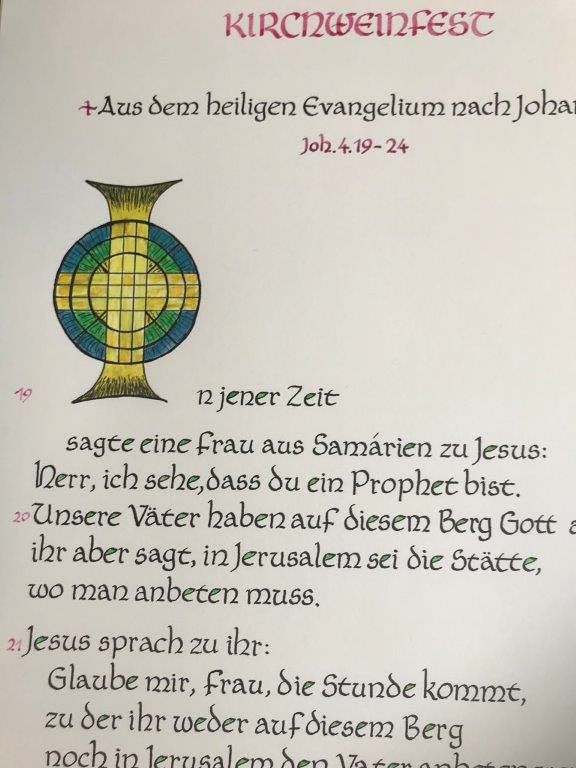 KIRCHWEIHFEST
+Aus dem heiligen Evangelium nach
Joh. 4. 19-24
19 In jener Zeit
sagte eine Frau aus Samárien zu Jesus:
Herr, ich sehe, dass du ein Prophet bist.
20 Unsere Väter haben auf diesem Berg Gott
ihr aber sagt, in Jerusalem sei die Stätte,
wo man anbeten muss.
21 Jesus sprach zu ihr:
Glaube mir, Frau, die Stunde kommt,
zu der ihr weder auf diesem Berg
noch in Jerusalem den Vater